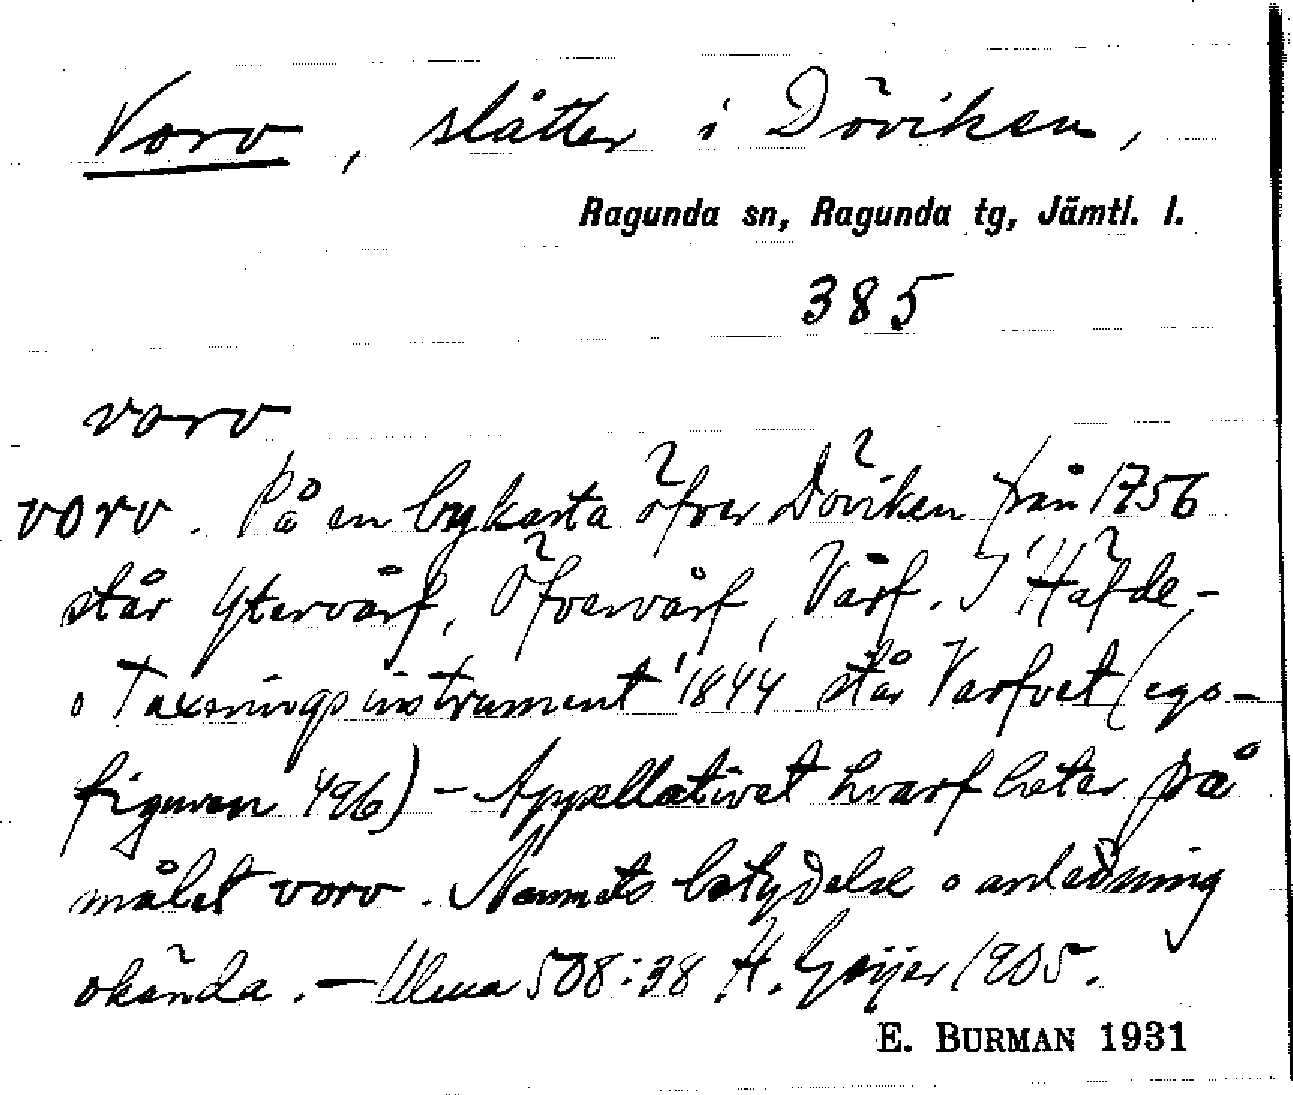 Vorv, slåtter i Döviken,
Ragunda sn, Ragunda tg, Jämtl. l.
385
vorv
vorv. På en bykarta öfver Döviken från 1756
står Ytervårf, Öfvervårf, Vårf. I "Häfde-
o Taxeringsinstrument" 1844 står Varfvet (ego-
figuren 496) - Appellativet hvarf heter på
målet vorv. Namnets betydelse o anledning
okända. - Ulma 508:38 H. Geijer 1905.
E. BURMAN 1931